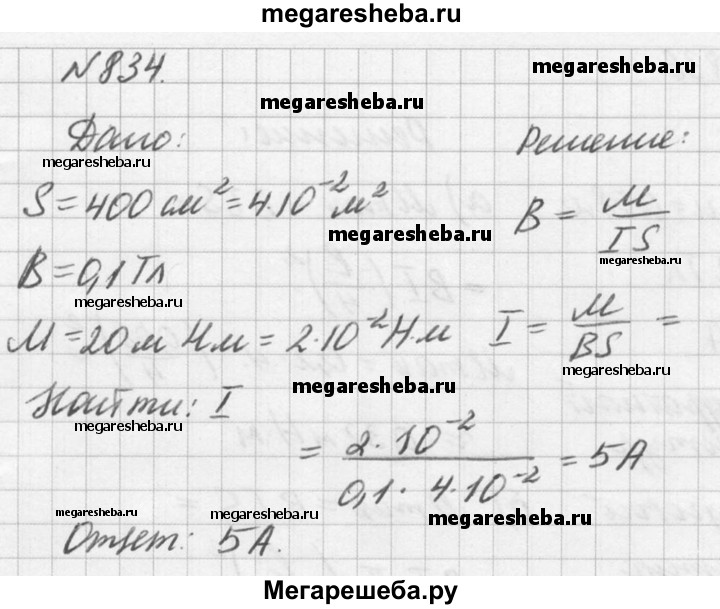 megaresheba.ru
№834.
megaresheba.ru
megaresheba.ru
Дано: Решение:
megaresheba.ru
S = 400 см² = 4·10⁻² м² B = M/IS
megaresheba.ru
megaresheba.ru
B = 0,1 Тл
megaresheba.ru
M = 20 м Н м = 2·10⁻² Н·м I = M/BS =
megaresheba.ru
megaresheba.ru
Найти: I
megaresheba.ru
= 2·10⁻²/0,1· 4·10⁻² = 5 А
megaresheba.ru megaresheba.ru megaresheba.ru
Ответ: 5 А.
Мегарешеба.ру